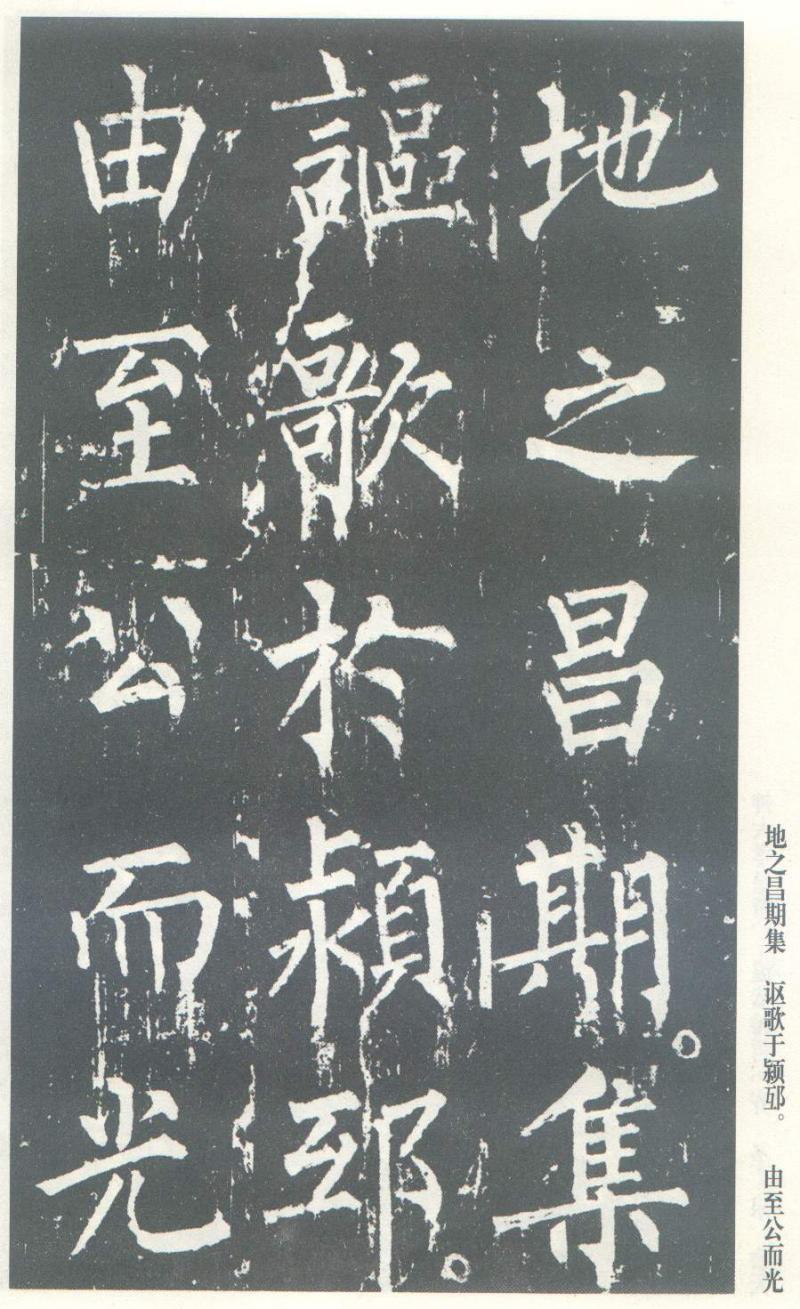 地之昌期。集
謳歌於潁邳。
由至公而光
地之昌期集 讴歌于颍邳。 由至公而光